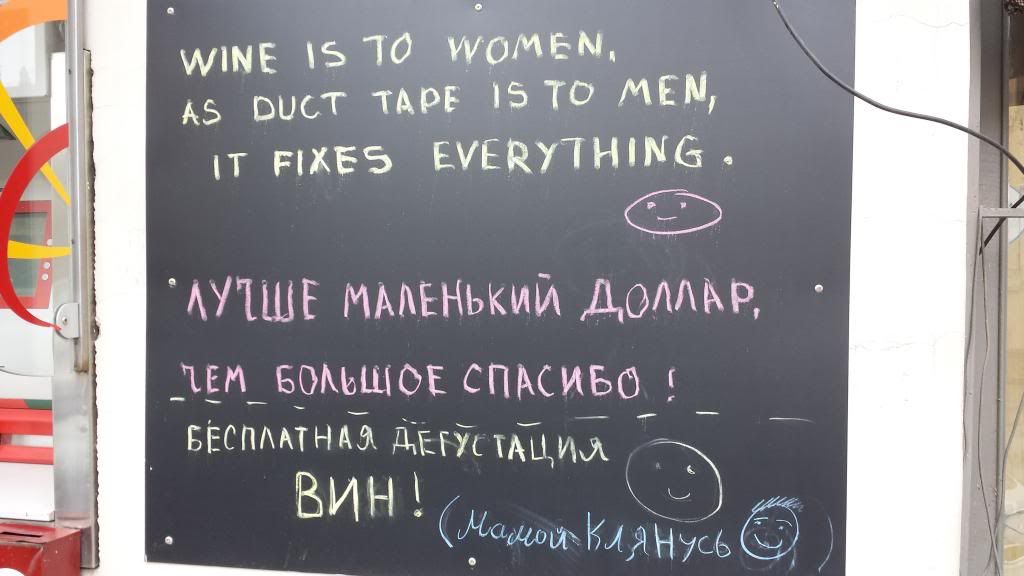 WINE IS TO WOMEN,
AS DUCT TAPE IS TO MEN,
IT FIXES EVERYTHING.
ЛУЧШЕ МАЛЕНЬКИЙ ДОЛЛАР,
ЧЕМ БОЛЬШОЕ СПАСИБО !
БЕСПЛАТНАЯ ДЕГУСТАЦИЯ
ВИН!
(Мамой КЛЯНУСЬ )